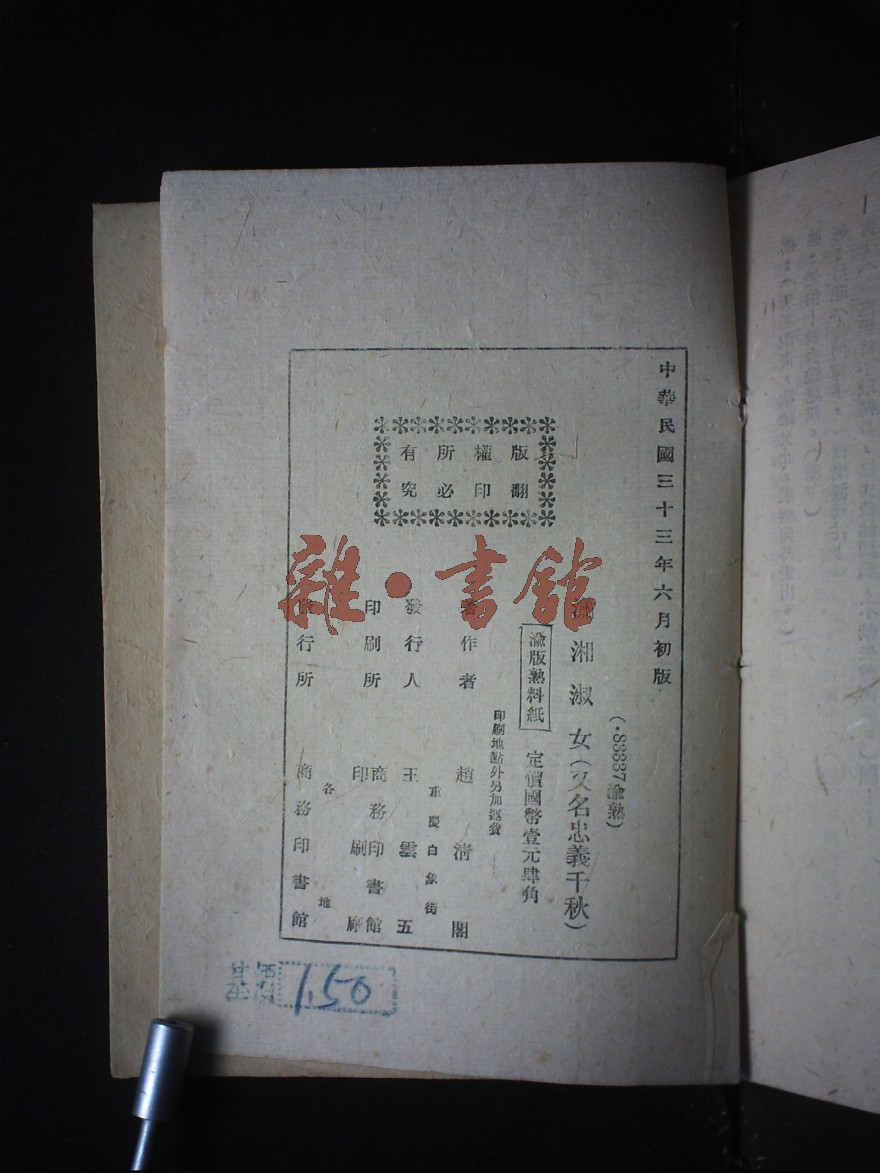 中華民國三十三年六月初版
(·83337渝熟)
瀟湘淑女(又名忠義千秋)
渝版熟料紙
定價國幣壹元肆角
印刷地點外另加運費
著作者 趙清閣
重慶白象街
發行人 王雲五
印刷所 商務印書館印刷廠
各地
發行所 商務印書館
版權所有
翻印必究
雜·書館
1.50